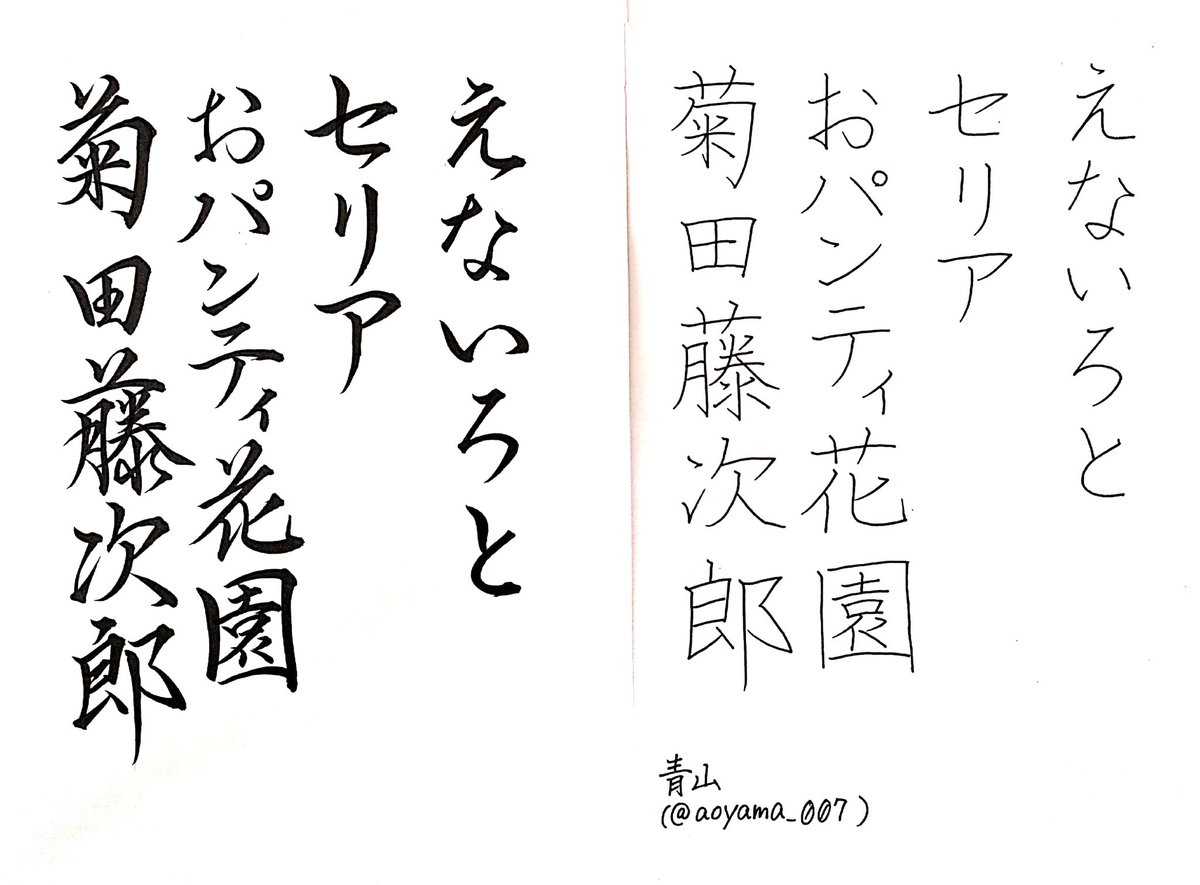 えないろと
セリア
おパンティ花園
菊田藤次郎
えないろと
セリア
おパンティ花園
菊田藤次郎
青山
(@aoyama_007)